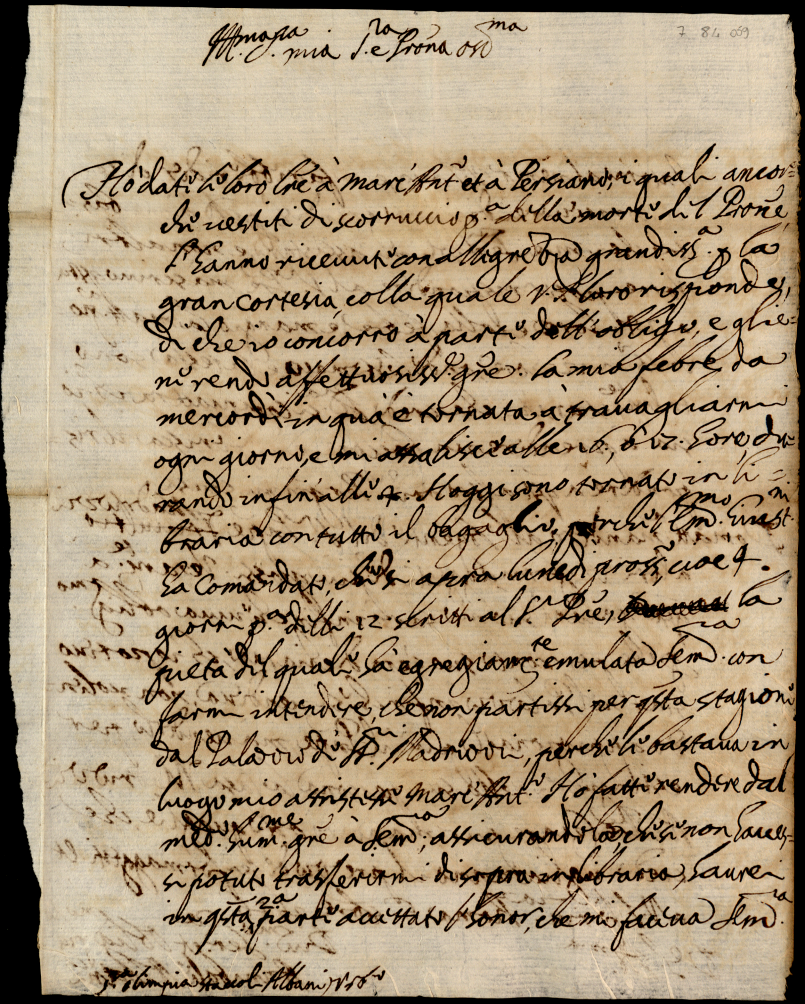 Ill.ma
mia S.ra e Prona oss.ma
7 84 059
Hò dati li loro lre à Marc'Ant.o et à Persiano, i quali ancor=
che vestiti di scorruccio p.a della morte del Prone,
l'hanno ricevute con allegrezza grandiss.a p la
gran cortesia, colla quale V.S. loro risponde,
di che io concorro à parte dell'obligo, e glie=
ne rendo affettuosiss.e gre. La mia febre da
mercordì in quà è tornata à travagliarmi
ogni giorno, e mi assalisce alle 16, ò 17 hore, du=
rando infin'alle. Hoggi sono tornato in li=
braria con tutto il bagaglio, perche l'Em.mo
hà comandato, che si apra lunedi pross.o, cioe 4.
giorni p.a delli 12 scritti al S.r Pre, la
pietà del quale hà egregiam.te emulata S.Em.za con
farmi intendere, che non partissi per q.sta stagione
dal Palazzo de SS.ri Madrucci, perche li bastava in
luogo mio assistesse Marc'Ant.o. Hò fatto rendere dal
med.o hum.me gre à S.Em.za, assicurandola che se non havess=
si potuto trasferirmi di sopra in libraria, haurei
in q.sta parte accettato l'honor, che mi faceva S.Em.za
S.ra Olimpia Staccoli Albani, Urb.o